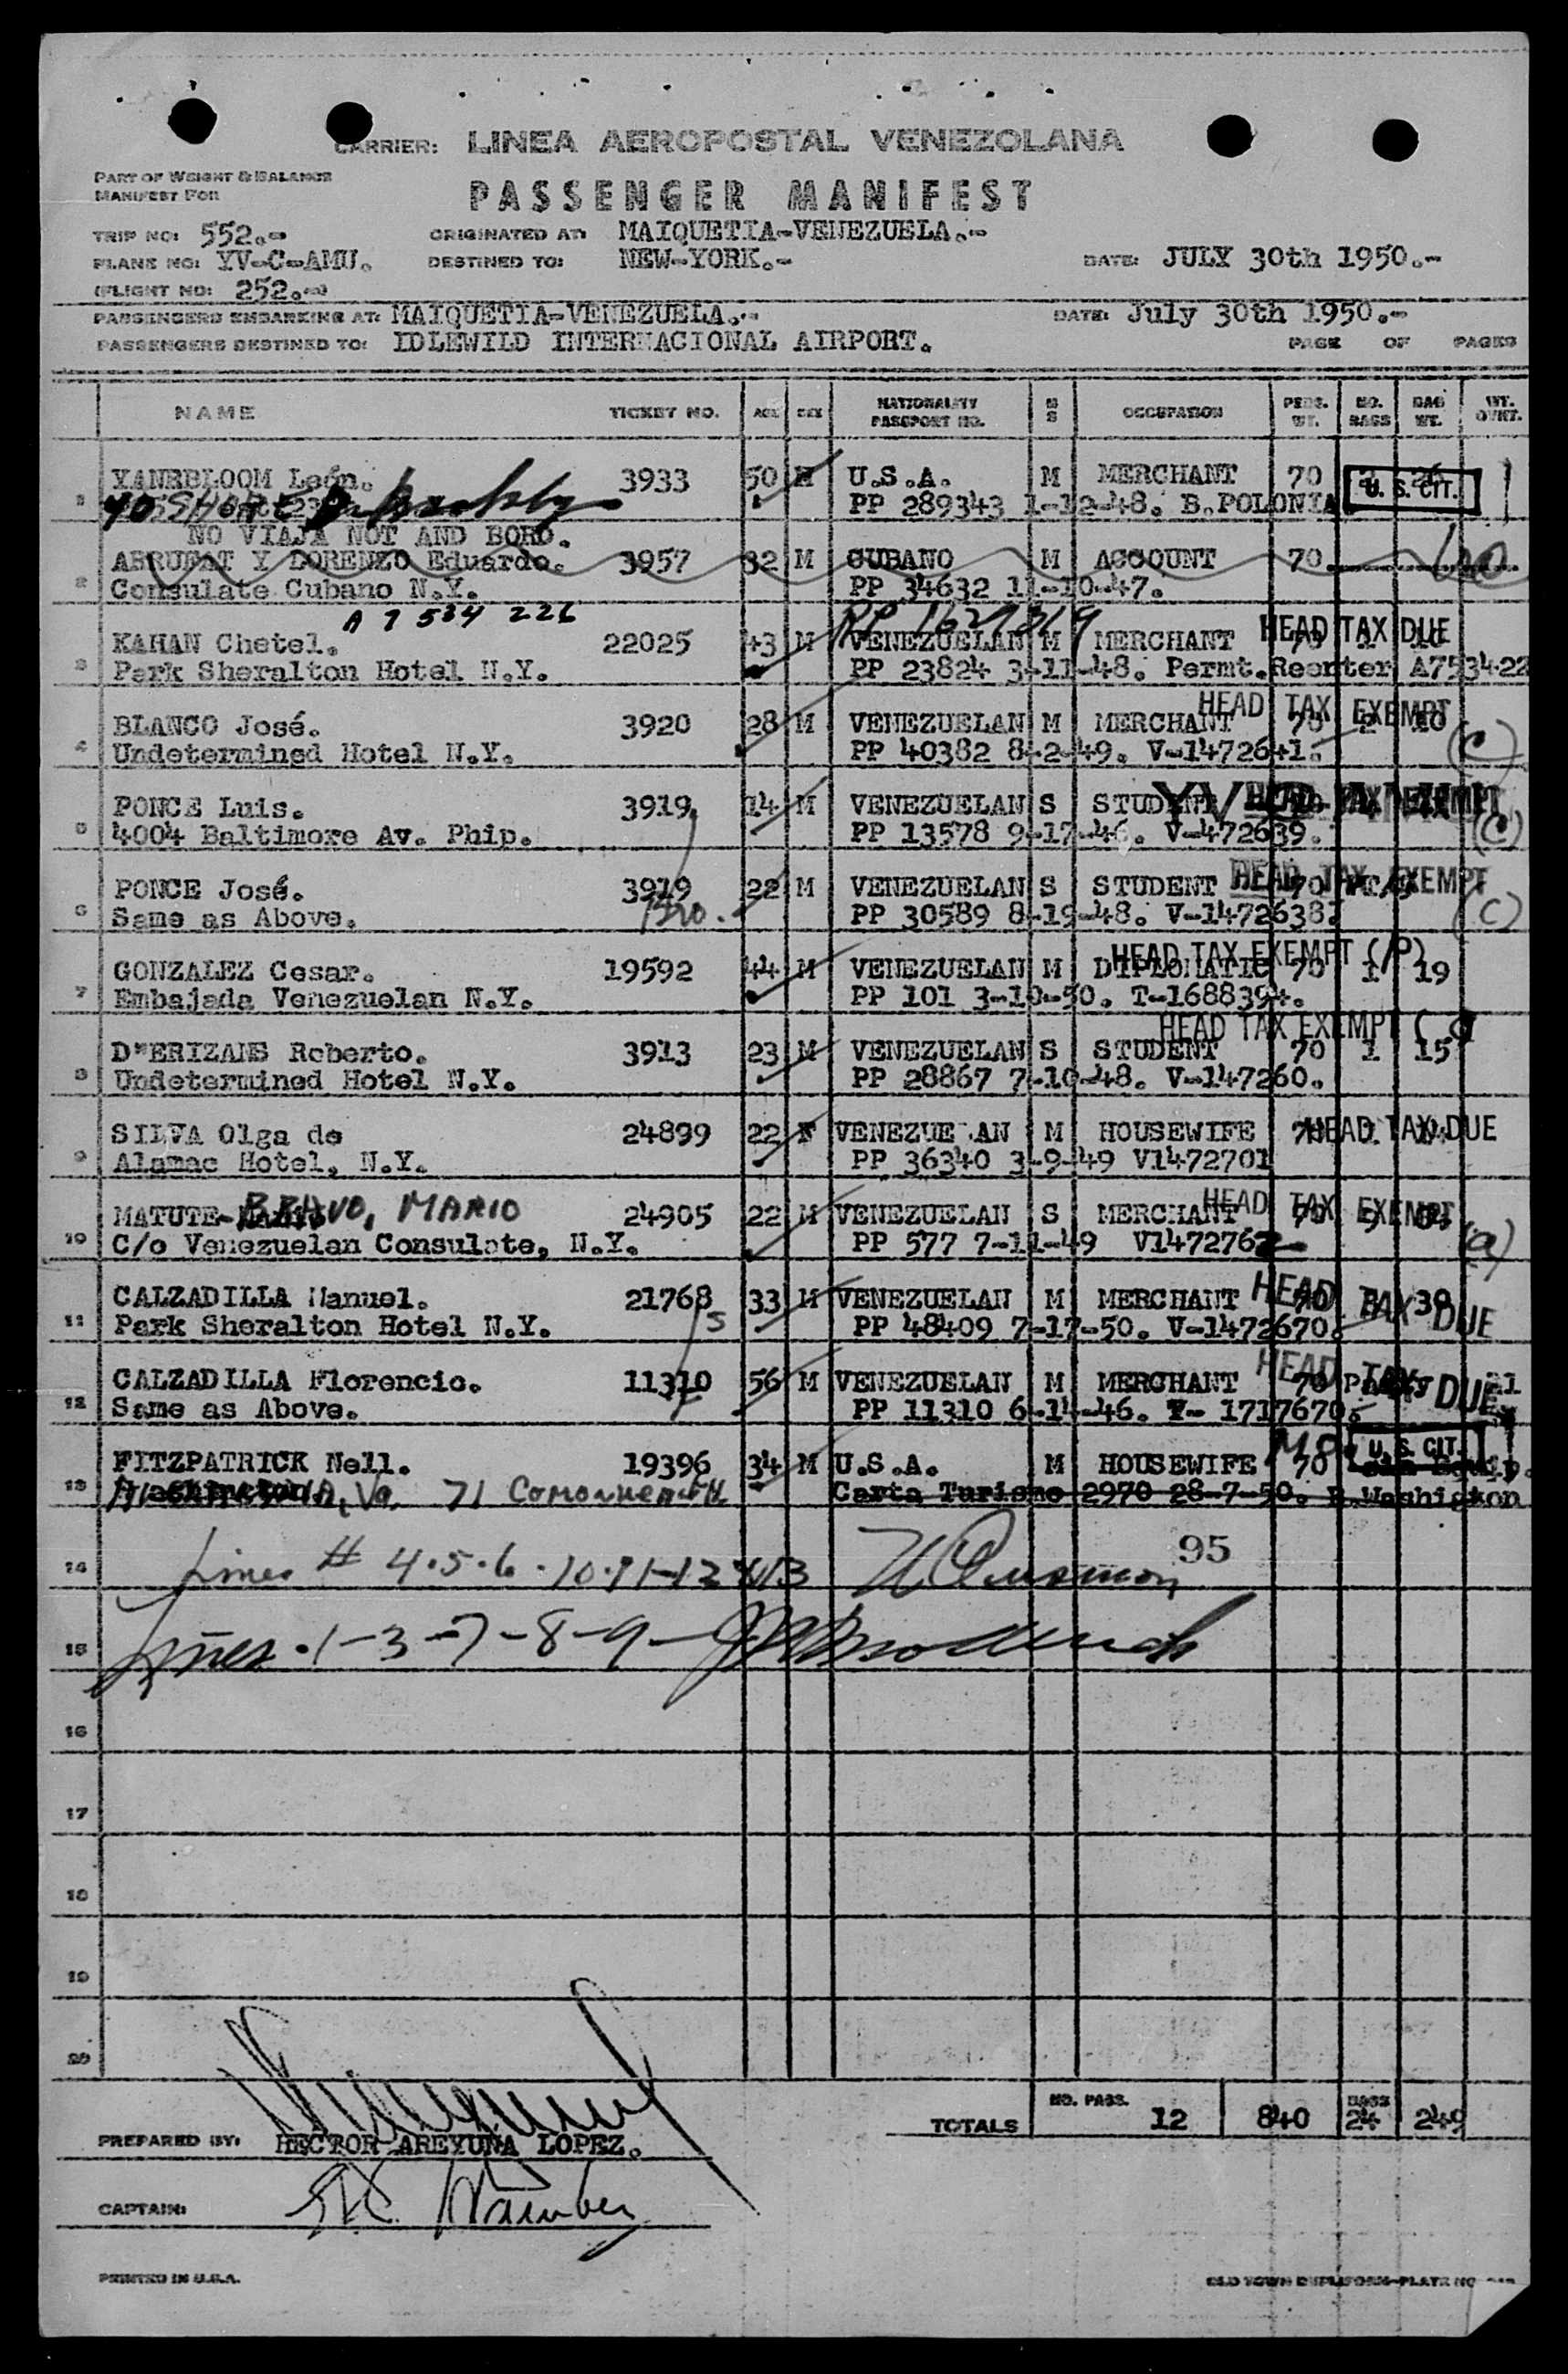 CARRIER: LINEA AEROPOSTAL VENEZOLANA
PART OF WEIGHT & BALANCE
MANIFEST FOR
PASSENGER MANIFEST
TRIP NO: 552.- ORIGINATED AT: MAIQUETIA-VENEZUELA.-
PLANE NO: YV-C-AMU. DESTINED TO: NEW-YORK.- DATE: JULY 30th 1950.-
(FLIGHT NO: 252.-)
PASSENGERS EMBARKING AT: MAIQUETIA-VENEZUELA.- DATE: July 30th 1950.-
PASSENGERS DESTINED TO: IDLEWILD INTERNACIONAL AIRPORT. PAGE OF PAGES
NAME TICKET NO. AGE SEX NATIONALITY PASSPORT NO. M S OCCUPATION PERS. WT. NO. BAGS BAG WT.
1 León. 3933 50 U.S.A. M MERCHANT 70 2 26 U. S. CIT.
40 SHORE PP 289343 1-12-48. B.POLONIA
NO VIAJA NOT AND BORD.
2 ABRUFAT Y LORENZO Eduardo. 3957 32 M CUBANO M ACCOUNT 70
Consulate Cubano N.Y. PP 34632 11-10-47.
A 7 534 226 RP 1629819
3 KAHAN Chetel. 22025 43 M VENEZUELAN M MERCHANT 70 1 10 HEAD TAX DUE
Park Sheralton Hotel N.Y. PP 23824 3-11-48. Permt.Reenter A753422
4 BLANCO José. 3920 28 M VENEZUELAN M MERCHANT 70 2 10 HEAD TAX EXEMPT
Undetermined Hotel N.Y. PP 40382 8-2-49. V-1472641. (C)
5 PONCE Luis. 3919 14 M VENEZUELAN S STUDENT HEAD TAX EXEMPT
4004 Baltimore Av. Phip. PP 13578 9-17-46. V-472639. (C)
6 PONCE José. 3919 22 M VENEZUELAN S STUDENT 70 HEAD TAX EXEMPT
Same as Above. PP 30589 8-19-48. V-1472638. (C)
7 GONZALEZ Cesar. 19592 44 M VENEZUELAN M DIPLOMATIC 70 1 19 HEAD TAX EXEMPT
Embajada Venezuelan N.Y. PP 101 3-10-50. T-1688394.
8 D"ERIZANS Roberto. 3913 23 M VENEZUELAN S STUDENT 70 1 15 HEAD TAX EXEMPT
Undetermined Hotel N.Y. PP 28867 7-10-48. V-147260.
9 SILVA Olga de 24899 22 F VENEZUELAN M HOUSEWIFE HEAD TAX DUE
Alamac Hotel, N.Y. PP 36340 3-9-49 V1472701
10 MATUTE- BRAVO, MARIO 24905 22 M VENEZUELAN S MERCHANT 70 HEAD TAX EXEMPT
C/o Venezuelan Consulate, N.Y. PP 577 7-11-49 V1472762 (a)
11 CALZADILLA Manuel. 21768 33 M VENEZUELAN M MERCHANT 70 HEAD TAX DUE
Park Sheralton Hotel N.Y. PP 48409 7-17-50. V-1472670.
12 CALZADILLA Florencio. 11310 56 M VENEZUELAN M MERCHANT 70 HEAD TAX DUE
Same as Above. PP 11310 6-14-46. T- 1717670.
13 FITZPATRICK Nell. 19396 34 M U.S.A. M HOUSEWIFE 70 U. S. CIT.
Va. 71 Carta Turismo 2970 28-7-50. B.Washigton
14 Lines # 4.5.6.10.11-12 &13 95
15 Lines 1-3-7-8-9-
16
17
18
19
20
TOTALS NO. PASS. 12 840 BAGS 24 249
PREPARED BY: HECTOR AREYUNA LOPEZ.
CAPTAIN:
PRINTED IN U.S.A.